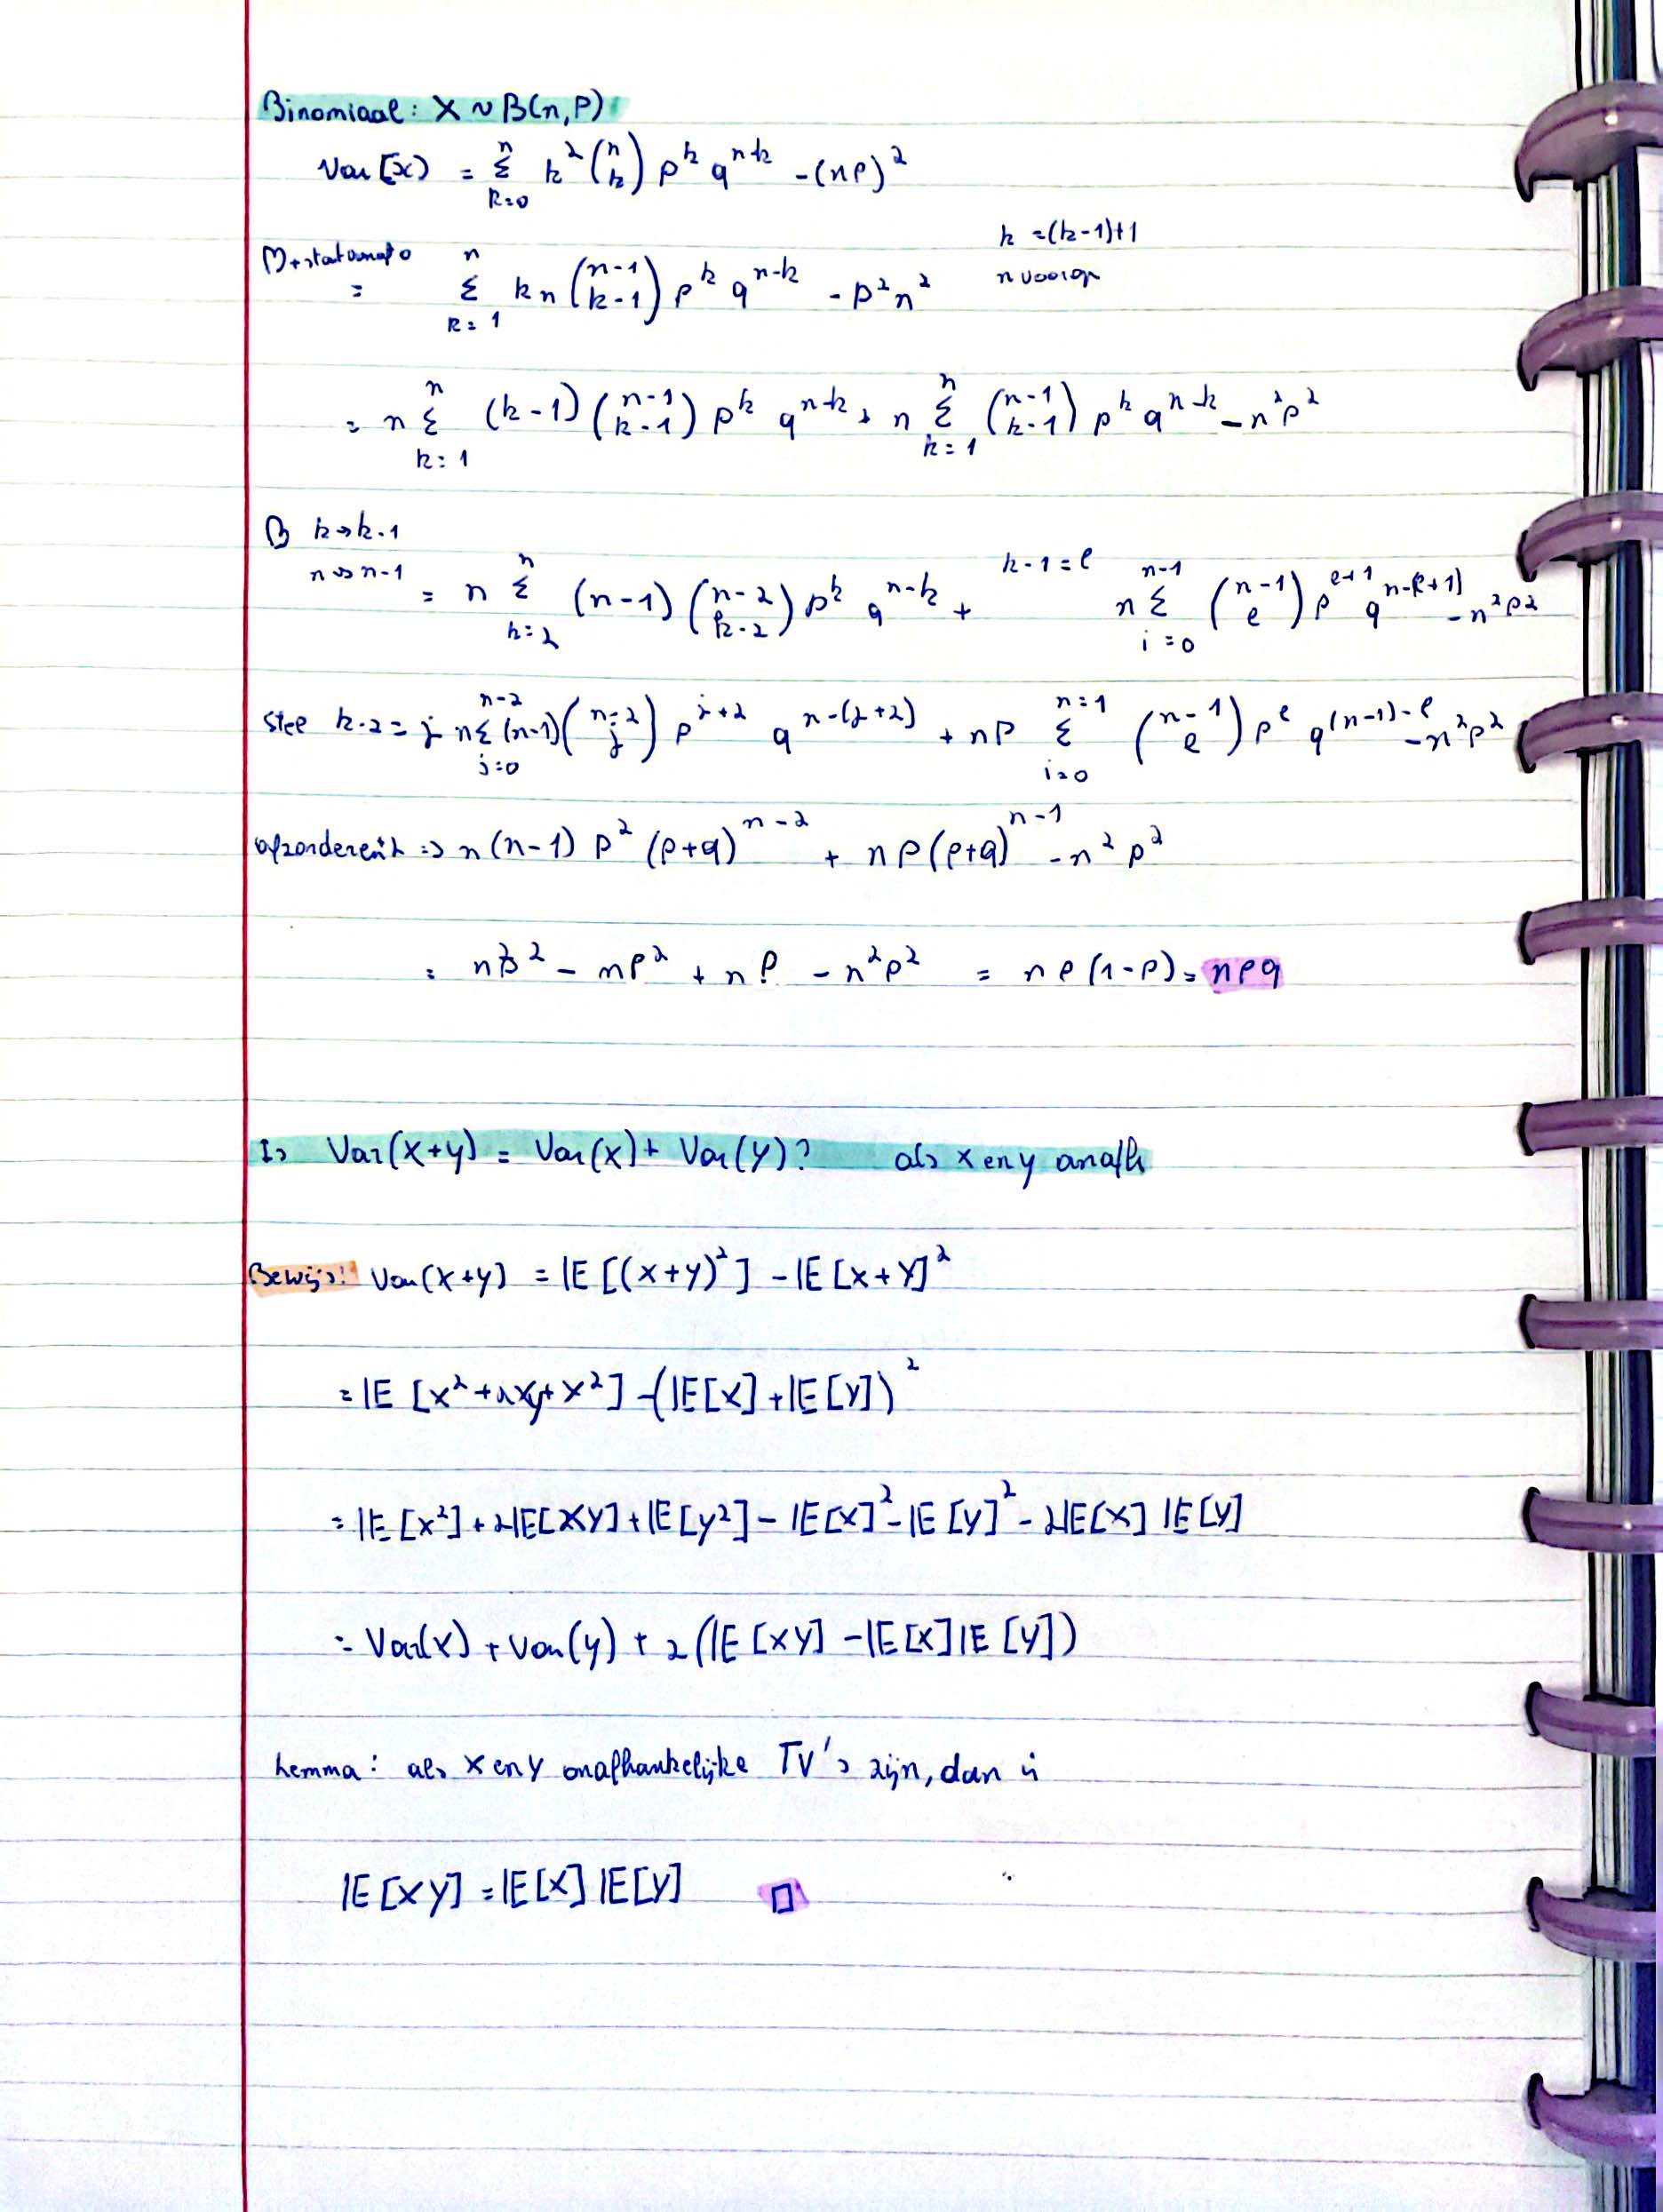 Binomiaal: X ~ B(n,p)
Var[x) = Σ_{k=0}^{n} k² (n k) p^k q^{n-k} - (np)²
k = (k-1)+1
n voorop
= Σ_{k=1}^{n} kn (n-1 k-1) p^k q^{n-k} - p²n²
= n Σ_{k=1}^{n} (k-1) (n-1 k-1) p^k q^{n-k} + n Σ_{k=1}^{n} (n-1 k-1) p^k q^{n-k} - n²p²
k→k-1
n→n-1 = n Σ_{k=2}^{n} (n-1) (n-2 k-2) p^k q^{n-k} + k-1=l n Σ_{i=0}^{n-1} (n-1 l) p^{l+1} q^{n-(l+1)} - n²p²
stel k-2=j n Σ_{j=0}^{n-2} (n-1) (n-2 j) p^{j+2} q^{n-(j+2)} + np Σ_{i=0}^{n=1} (n-1 l) p^l q^{(n-1)-l} - n²p²
⇒ n(n-1) p² (p+q)^{n-2} + np(p+q)^{n-1} - n²p²
= - np² + np - n²p² = np(1-p) = npq
Is Var(x+y) = Var(x) + Var(y)? als x en y onafh
Bewijs: Var(x+y) = 𝔼[(x+y)²] - 𝔼[x+y]²
= 𝔼[x²+2xy+x²] - (𝔼[x]+𝔼[y])²
= 𝔼[x²] + 2𝔼[xy] + 𝔼[y²] - 𝔼[x]² - 𝔼[y]² - 2𝔼[x] 𝔼[y]
= Var(x) + Var(y) + 2(𝔼[xy] - 𝔼[x]𝔼[y])
Lemma: als x en y onafhankelijke TV's zijn, dan is
𝔼[xy] = 𝔼[x] 𝔼[y] □